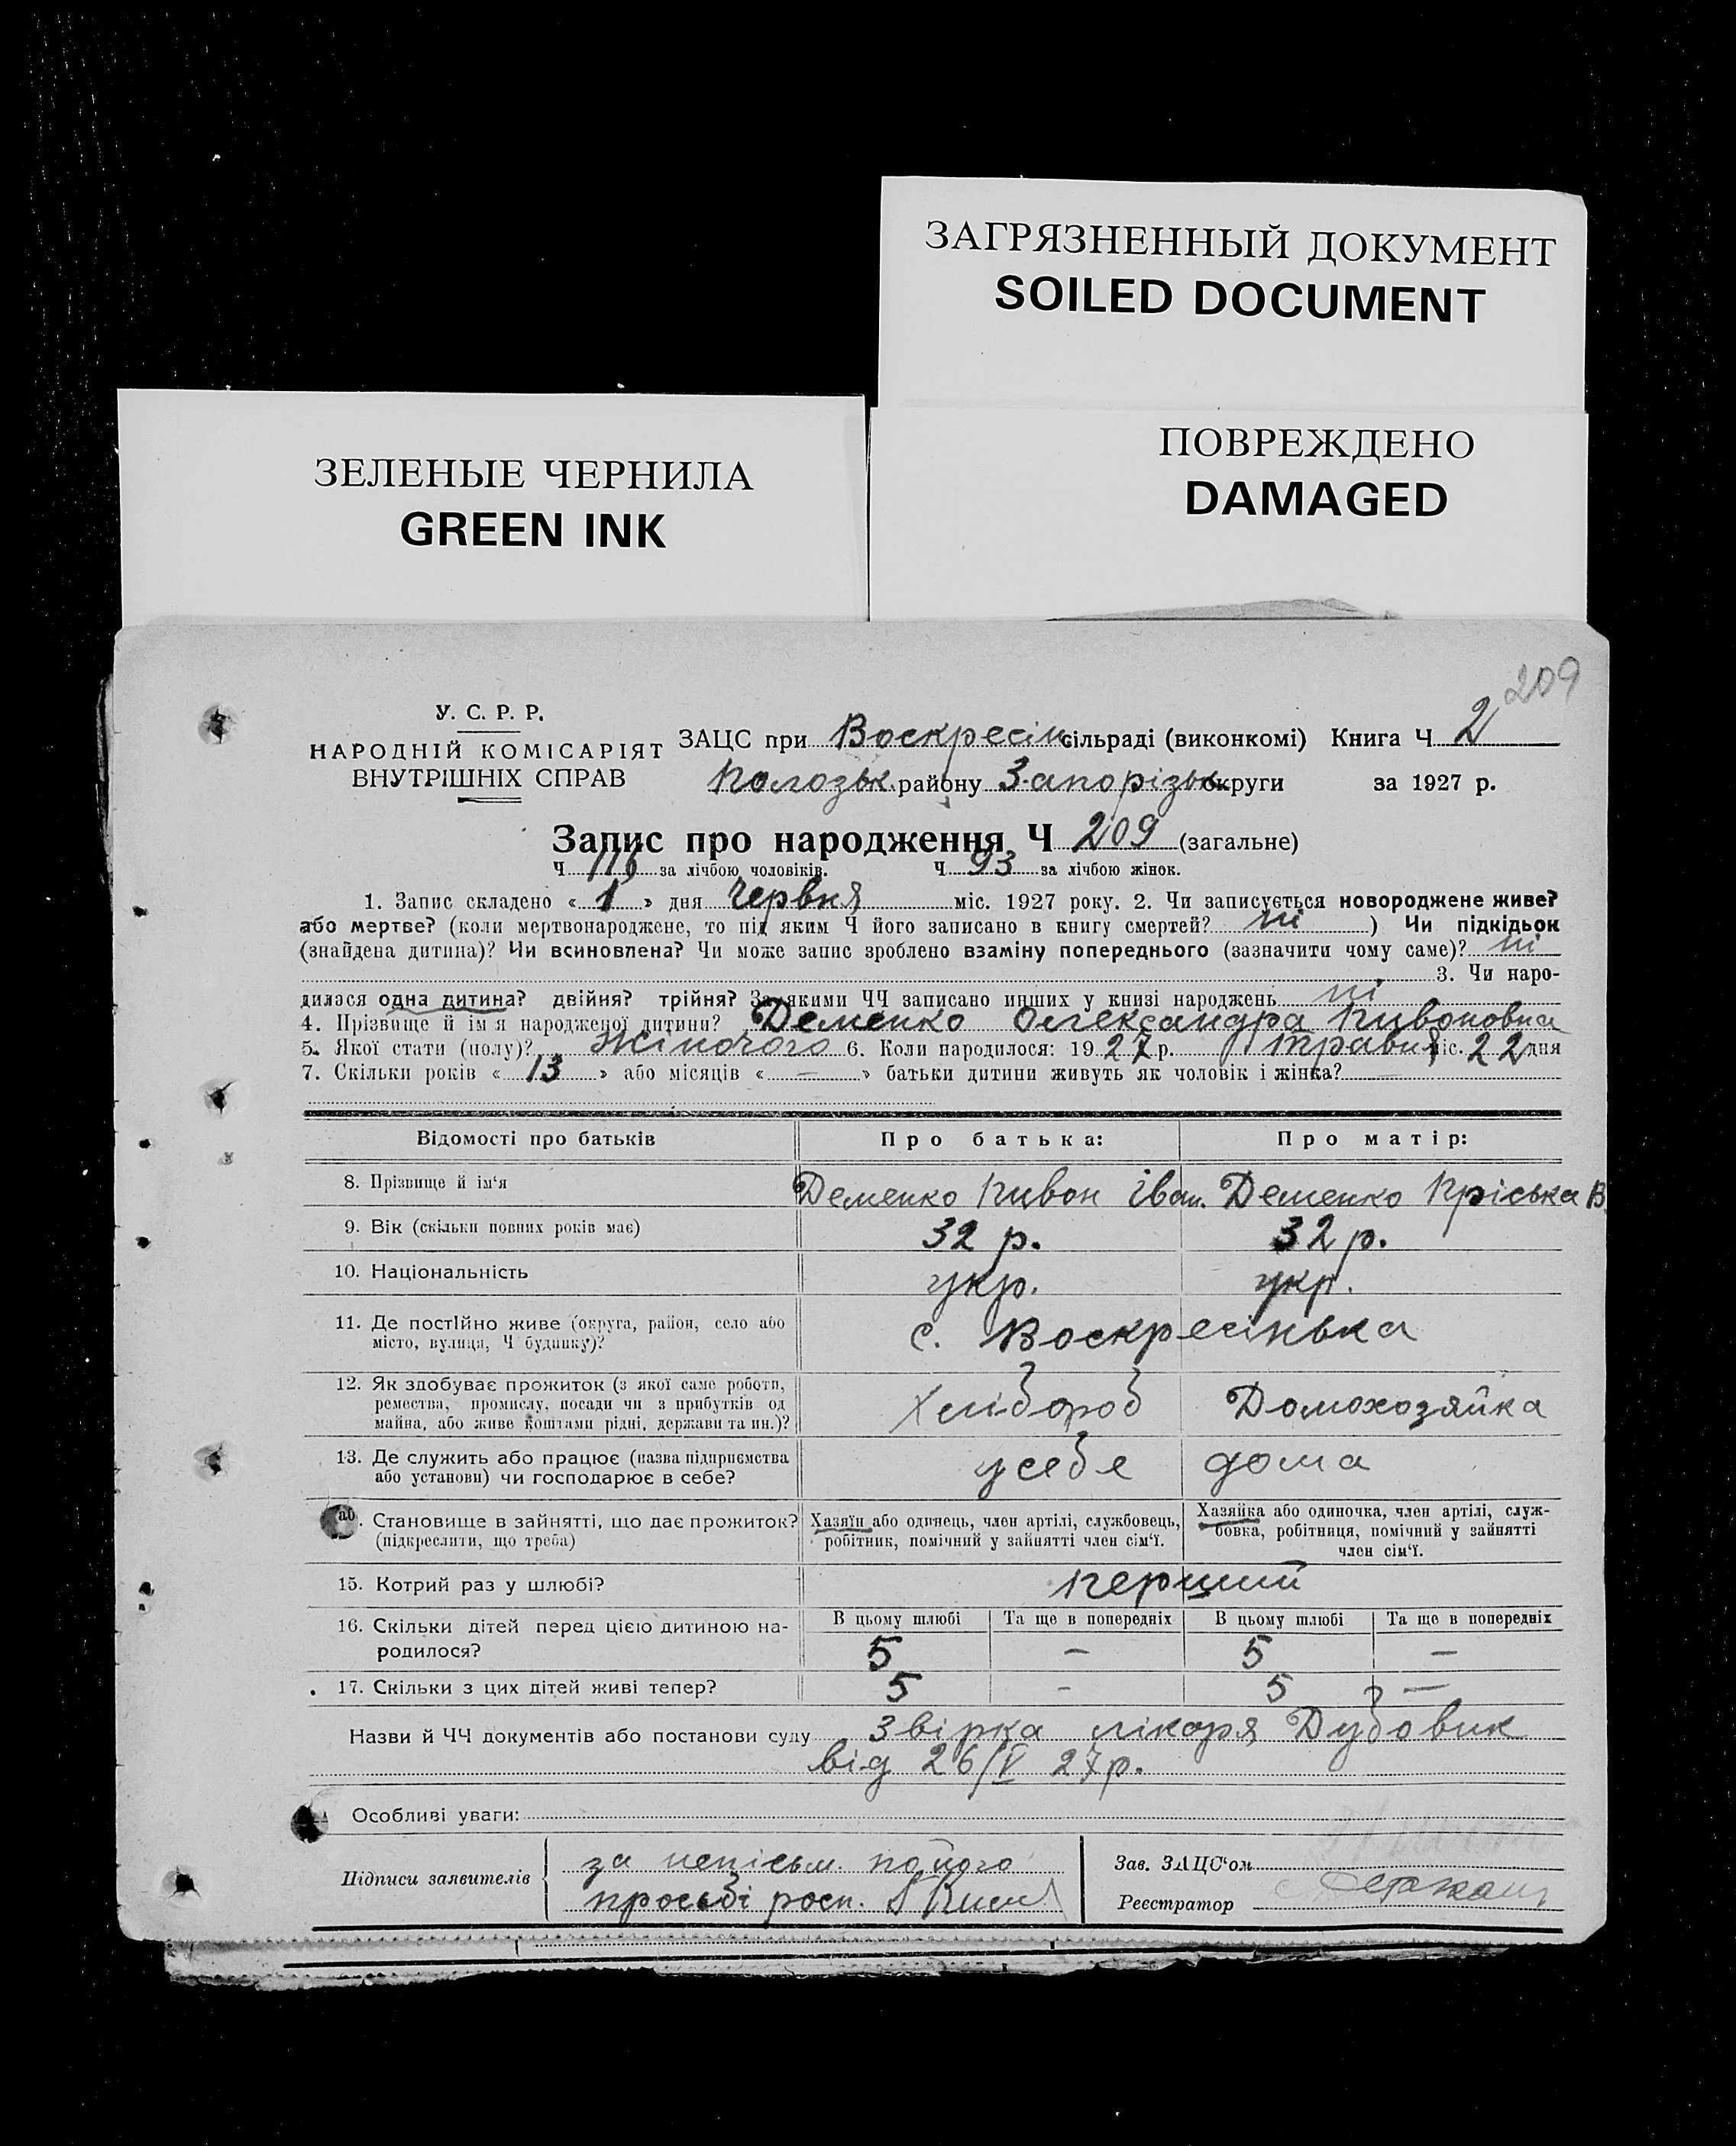 ЗАГРЯЗНЕННЫЙ ДОКУМЕНТ
SOILED DOCUMENT
ЗЕЛЕНЫЕ ЧЕРНИЛА
GREEN INK
ПОВРЕЖДЕНО
DAMAGED
209
У. С. Р. Р.
НАРОДНІЙ КОМІСАРІЯТ
ВНУТРІШНІХ СПРАВ
ЗАЦС при Воскресін сільраді (виконкомі) Книга Ч 2
Пологзьк. району Запорізьк. округи за 1927 р.
Запис про народження Ч 209 (загальне)
Ч 116 за лічбою чоловіків. Ч 93 за лічбою жінок.
1. Запис складено « 1 » дня червня міс. 1927 року. 2. Чи записується новороджене живе?
або мертве? (коли мертвонароджене, то під яким Ч його записано в книгу смертей? ні ) Чи підкідьок
(знайдена дитина)? Чи всиновлена? Чи може запис зроблено взаміну попереднього (зазначити чому саме)? ні
3. Чи наро-
дилася одна дитина? двійня? трійня? За якими ЧЧ записано инших у книзі народжень ні
4. Прізвище й ім'я народженої дитини? Деменко Олександра Пивоновна
5. Якої стати (полу)? Жіночого 6. Коли народилося: 19 27 р. травня міс. 22 дня
7. Скільки років « 13 » або місяців « — » батьки дитини живуть як чоловік і жінка? —
Відомості про батьків Про батька: Про матір:
8. Прізвище й ім'я Деменко Пивон Іван. Деменко Пріська В.
9. Вік (скільки повних років має) 32 р. 32 р.
10. Національність укр. укр.
11. Де постійно живе (округа, район, село або
місто, вулиця, Ч будинку)? с. Воскресінька
12. Як здобуває прожиток (з якої саме роботи,
ремества, промислу, посади чи з прибутків од
майна, або живе коштами рідні, держави та ин.)? Хлібороб Домохозяйка
13. Де служить або працює (назва підприємства
або установи) чи господарює в себе? у себе дома
. Становище в зайнятті, що дає прожиток?
(підкреслити, що треба)
Хазяїн або одинець, член артілі, службовець,
робітник, помічний у зайнятті член сім'ї.
Хазяйка або одиночка, член артілі, служ-
бовка, робітниця, помічний у зайнятті
член сім'ї.
15. Котрий раз у шлюбі? перший
16. Скільки дітей перед цією дитиною на-
родилося?
В цьому шлюбі Та ще в попередніх В цьому шлюбі Та ще в попередніх
5 — 5 —
17. Скільки з цих дітей живі тепер? 5 — 5 —
Назви й ЧЧ документів або постанови суду Звірка лікаря Дубовик
від 26/V 27 р.
Особливі уваги:
Підписи заявителів за неписьм. по його
просьбі росп.
Зав. ЗАЦС'ом
Реєстратор